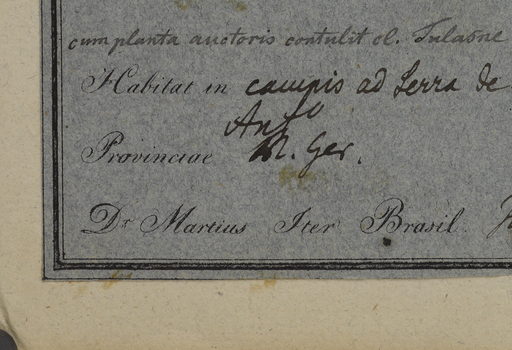 cum planta auctoris contulit cl. Tulasne
Habitat in campis ad Serra de
Anto
Provinciae M. Ger.
Dr. Martius Iter Brasil.